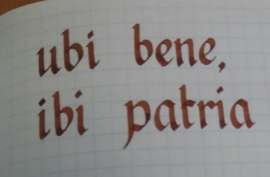 ubi bene,
ibi patria